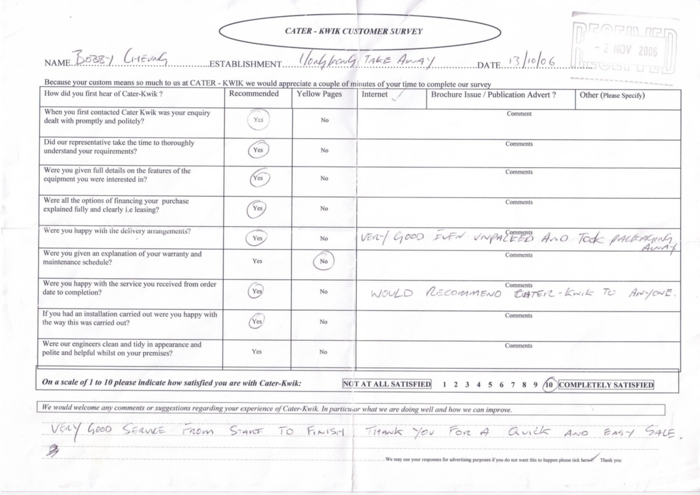 CATER - KWIK CUSTOMER SURVEY
- 2 NOV 2006
NAME BOBBY CHEUNG ESTABLISHMENT Hong Kong TAKE AWAY DATE 13/10/06
Because your custom means so much to us at CATER - KWIK we would appreciate a couple of minutes of your time to complete our survey
How did you first hear of Cater-Kwik ? Recommended Yellow Pages Internet ✓ Brochure Issue / Publication Advert ? Other (Please Specify)
When you first contacted Cater Kwik was your enquiry Comment
dealt with promptly and politely? Yes No
Did our representative take the time to thoroughly Comments
understand your requirements? Yes No
Were you given full details on the features of the Comments
equipment you were interested in? Yes No
Were all the options of financing your purchase Comments
explained fully and clearly i.e leasing? Yes No
Were you happy with the delivery arrangements? Yes No Comments
VERY GOOD EVEN UNPACKED AND TOOK PACKAGING
AWAY
Were you given an explanation of your warranty and Comments
maintenance schedule? Yes No
Were you happy with the service you received from order Comments
date to completion? Yes No WOULD RECOMMEND CATER-KWIK TO ANYONE.
If you had an installation carried out were you happy with Comments
the way this was carried out? Yes No
Were our engineers clean and tidy in appearance and Comments
polite and helpful whilst on your premises? Yes No
On a scale of 1 to 10 please indicate how satisfied you are with Cater-Kwik: NOT AT ALL SATISFIED 1 2 3 4 5 6 7 8 9 10 COMPLETELY SATISFIED
We would welcome any comments or suggestions regarding your experience of Cater-Kwik. In particular what we are doing well and how we can improve.
VERY GOOD SERVICE FROM START TO FINISH. THANK YOU FOR A QUICK AND EASY SALE.
We may use your responses for advertising purposes if you do not want this to happen please tick here Thank you